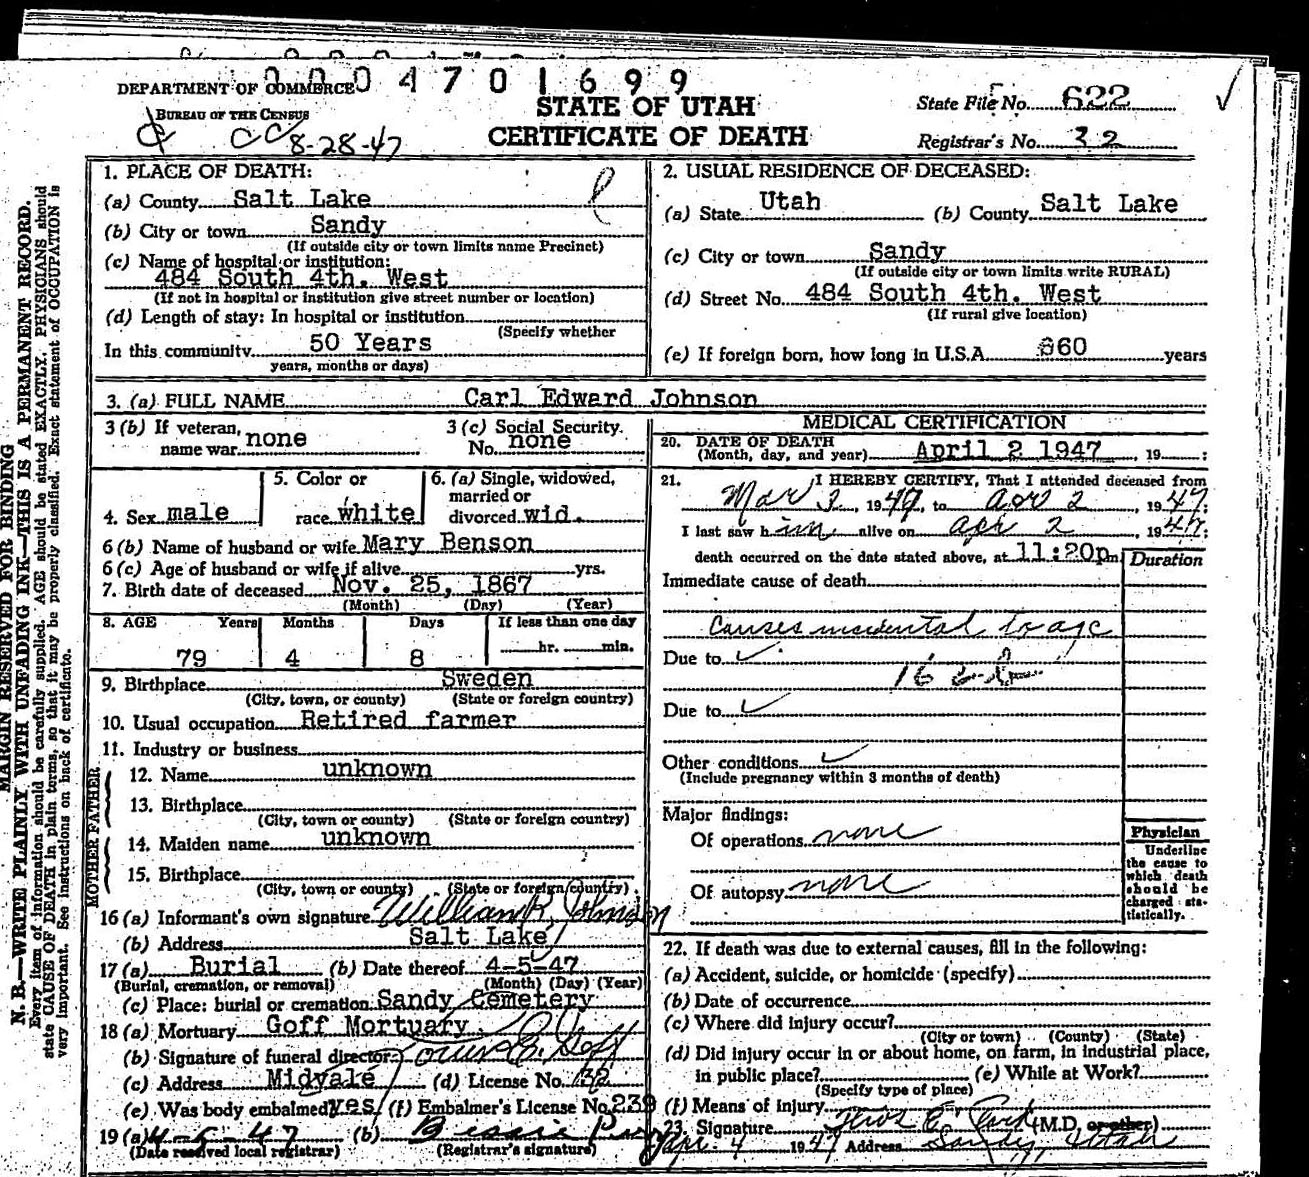 0004701699
DEPARTMENT OF COMMERCE
BUREAU OF THE CENSUS
CC 8-28-47
STATE OF UTAH
CERTIFICATE OF DEATH
State File No. 622
Registrar's No. 32
MARGIN RESERVED FOR BINDING
N. B.—WRITE PLAINLY, WITH UNFADING INK—THIS IS A PERMANENT RECORD.
Every item of information should be carefully supplied. AGE should be stated EXACTLY. PHYSICIANS should
state CAUSE OF DEATH in plain terms, so that it may be properly classified. Exact statement of OCCUPATION is
very important. See instructions on back of certificate.
1. PLACE OF DEATH:
(a) County Salt Lake
(b) City or town Sandy
(If outside city or town limits name Precinct)
(c) Name of hospital or institution:
484 South 4th. West
(If not in hospital or institution give street number or location)
(d) Length of stay: In hospital or institution
(Specify whether
In this community 50 Years
years, months or days)
2. USUAL RESIDENCE OF DECEASED:
(a) State Utah (b) County Salt Lake
(c) City or town Sandy
(If outside city or town limits write RURAL)
(d) Street No. 484 South 4th. West
(If rural give location)
(e) If foreign born, how long in U.S.A. 60 years
3. (a) FULL NAME Carl Edward Johnson
3 (b) If veteran, name war none
3 (c) Social Security No. none
4. Sex male
5. Color or race white
6. (a) Single, widowed, married or divorced wid.
6 (b) Name of husband or wife Mary Benson
6 (c) Age of husband or wife if alive yrs.
7. Birth date of deceased Nov. 25, 1867
(Month) (Day) (Year)
8. AGE Years Months Days If less than one day
79 4 8 hr. min.
9. Birthplace Sweden
(City, town, or county) (State or foreign country)
10. Usual occupation Retired farmer
11. Industry or business
FATHER
12. Name unknown
13. Birthplace
(City, town or county) (State or foreign country)
MOTHER
14. Maiden name unknown
15. Birthplace
(City, town or county) (State or foreign country)
16 (a) Informant's own signature William R. Johnson
(b) Address Salt Lake
17 (a) Burial (b) Date thereof 4-5-47
(Burial, cremation, or removal) (Month) (Day) (Year)
(c) Place: burial or cremation Sandy Cemetery
18 (a) Mortuary Goff Mortuary
(b) Signature of funeral director Goff
(c) Address Midvale (d) License No. 132
(e) Was body embalmed yes (f) Embalmer's License No. 239
19 (a) 4-5-47 (b) Bessie
(Date received local registrar) (Registrar's signature)
MEDICAL CERTIFICATION
20. DATE OF DEATH
(Month, day, and year) April 2 1947, 19 ;
21. I HEREBY CERTIFY, That I attended deceased from
Mar 3, 1947, to apr 2, 1947;
I last saw him alive on apr 2, 1947;
death occurred on the date stated above, at 11:20p m.
Duration
Immediate cause of death
Causes incidental to age
Due to
162-b
Due to
Other conditions
(Include pregnancy within 3 months of death)
Major findings:
Of operations none
Of autopsy none
Physician
Underline
the cause to
which death
should be
charged sta-
tistically.
22. If death was due to external causes, fill in the following:
(a) Accident, suicide, or homicide (specify)
(b) Date of occurrence
(c) Where did injury occur?
(City or town) (County) (State)
(d) Did injury occur in or about home, on farm, in industrial place,
in public place? (e) While at Work?
(Specify type of place)
(f) Means of injury
23. Signature (M.D. or other)
Apr. 4 1947 Address Sandy Utah